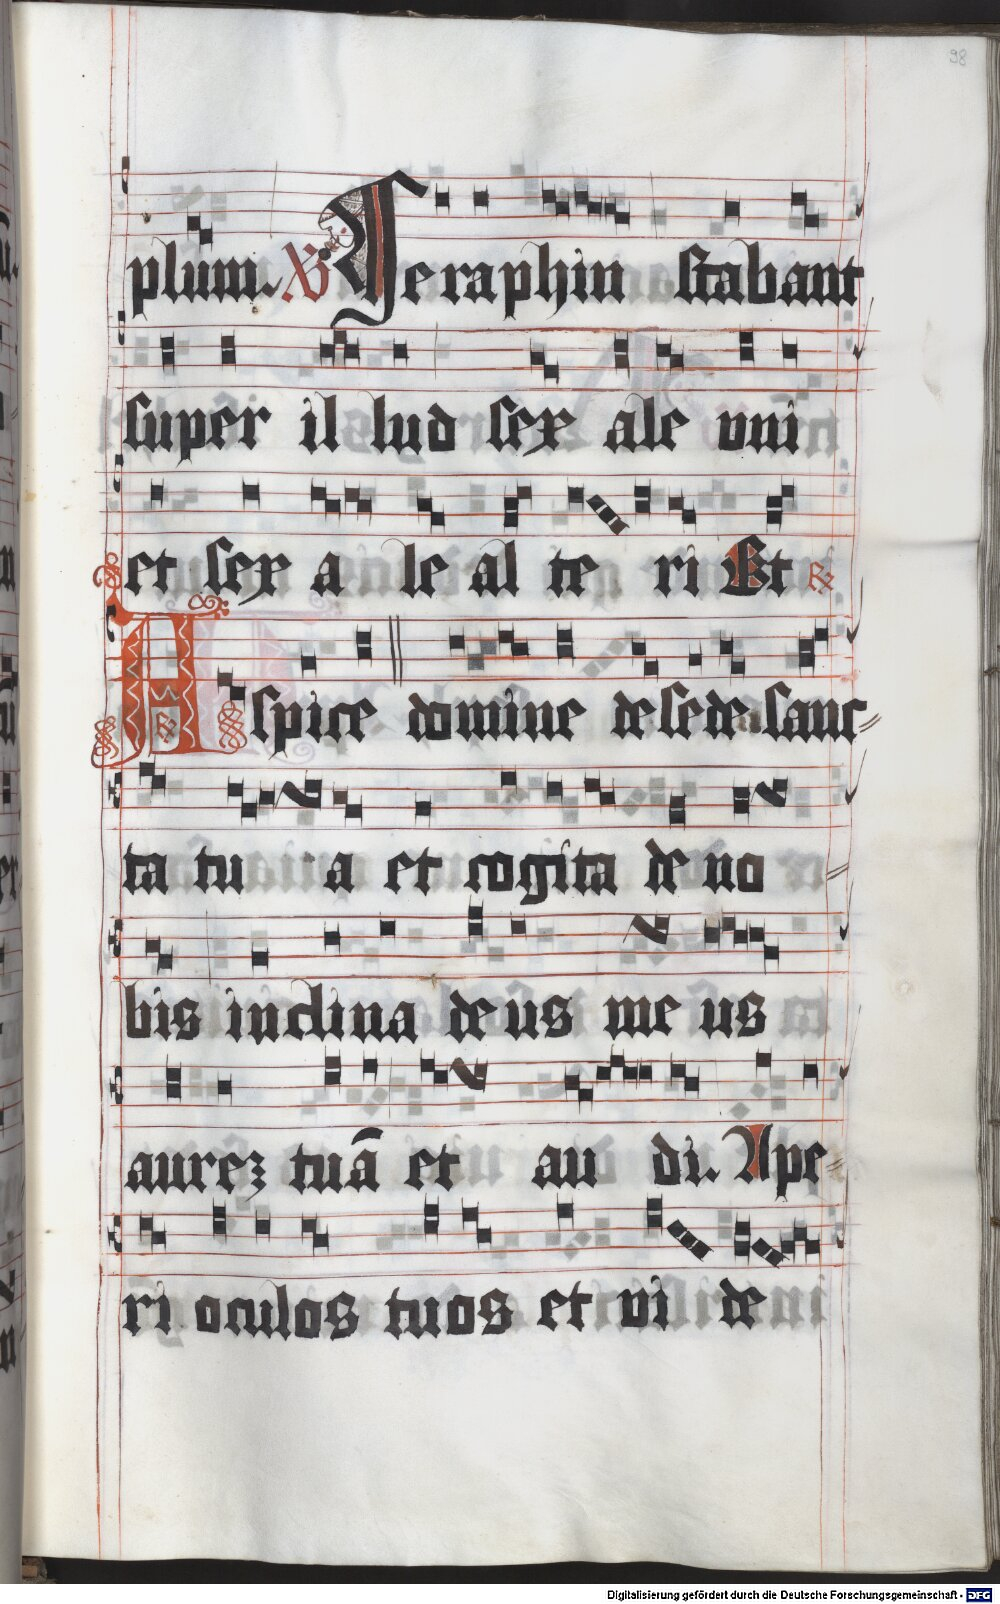 98
plum. ℣ Seraphin stabant
super il lud sex ale vni
et sex a le al te ri Et ℟
Aspice domine de sede sanc⸗
ta tu a et cogita de no
bis inclina deus me us
aurez tuā et au di. Ape⸗
ri oculos tuos et vi de
Digitalisierung gefördert durch die Deutsche Forschungsgemeinschaft - DFG